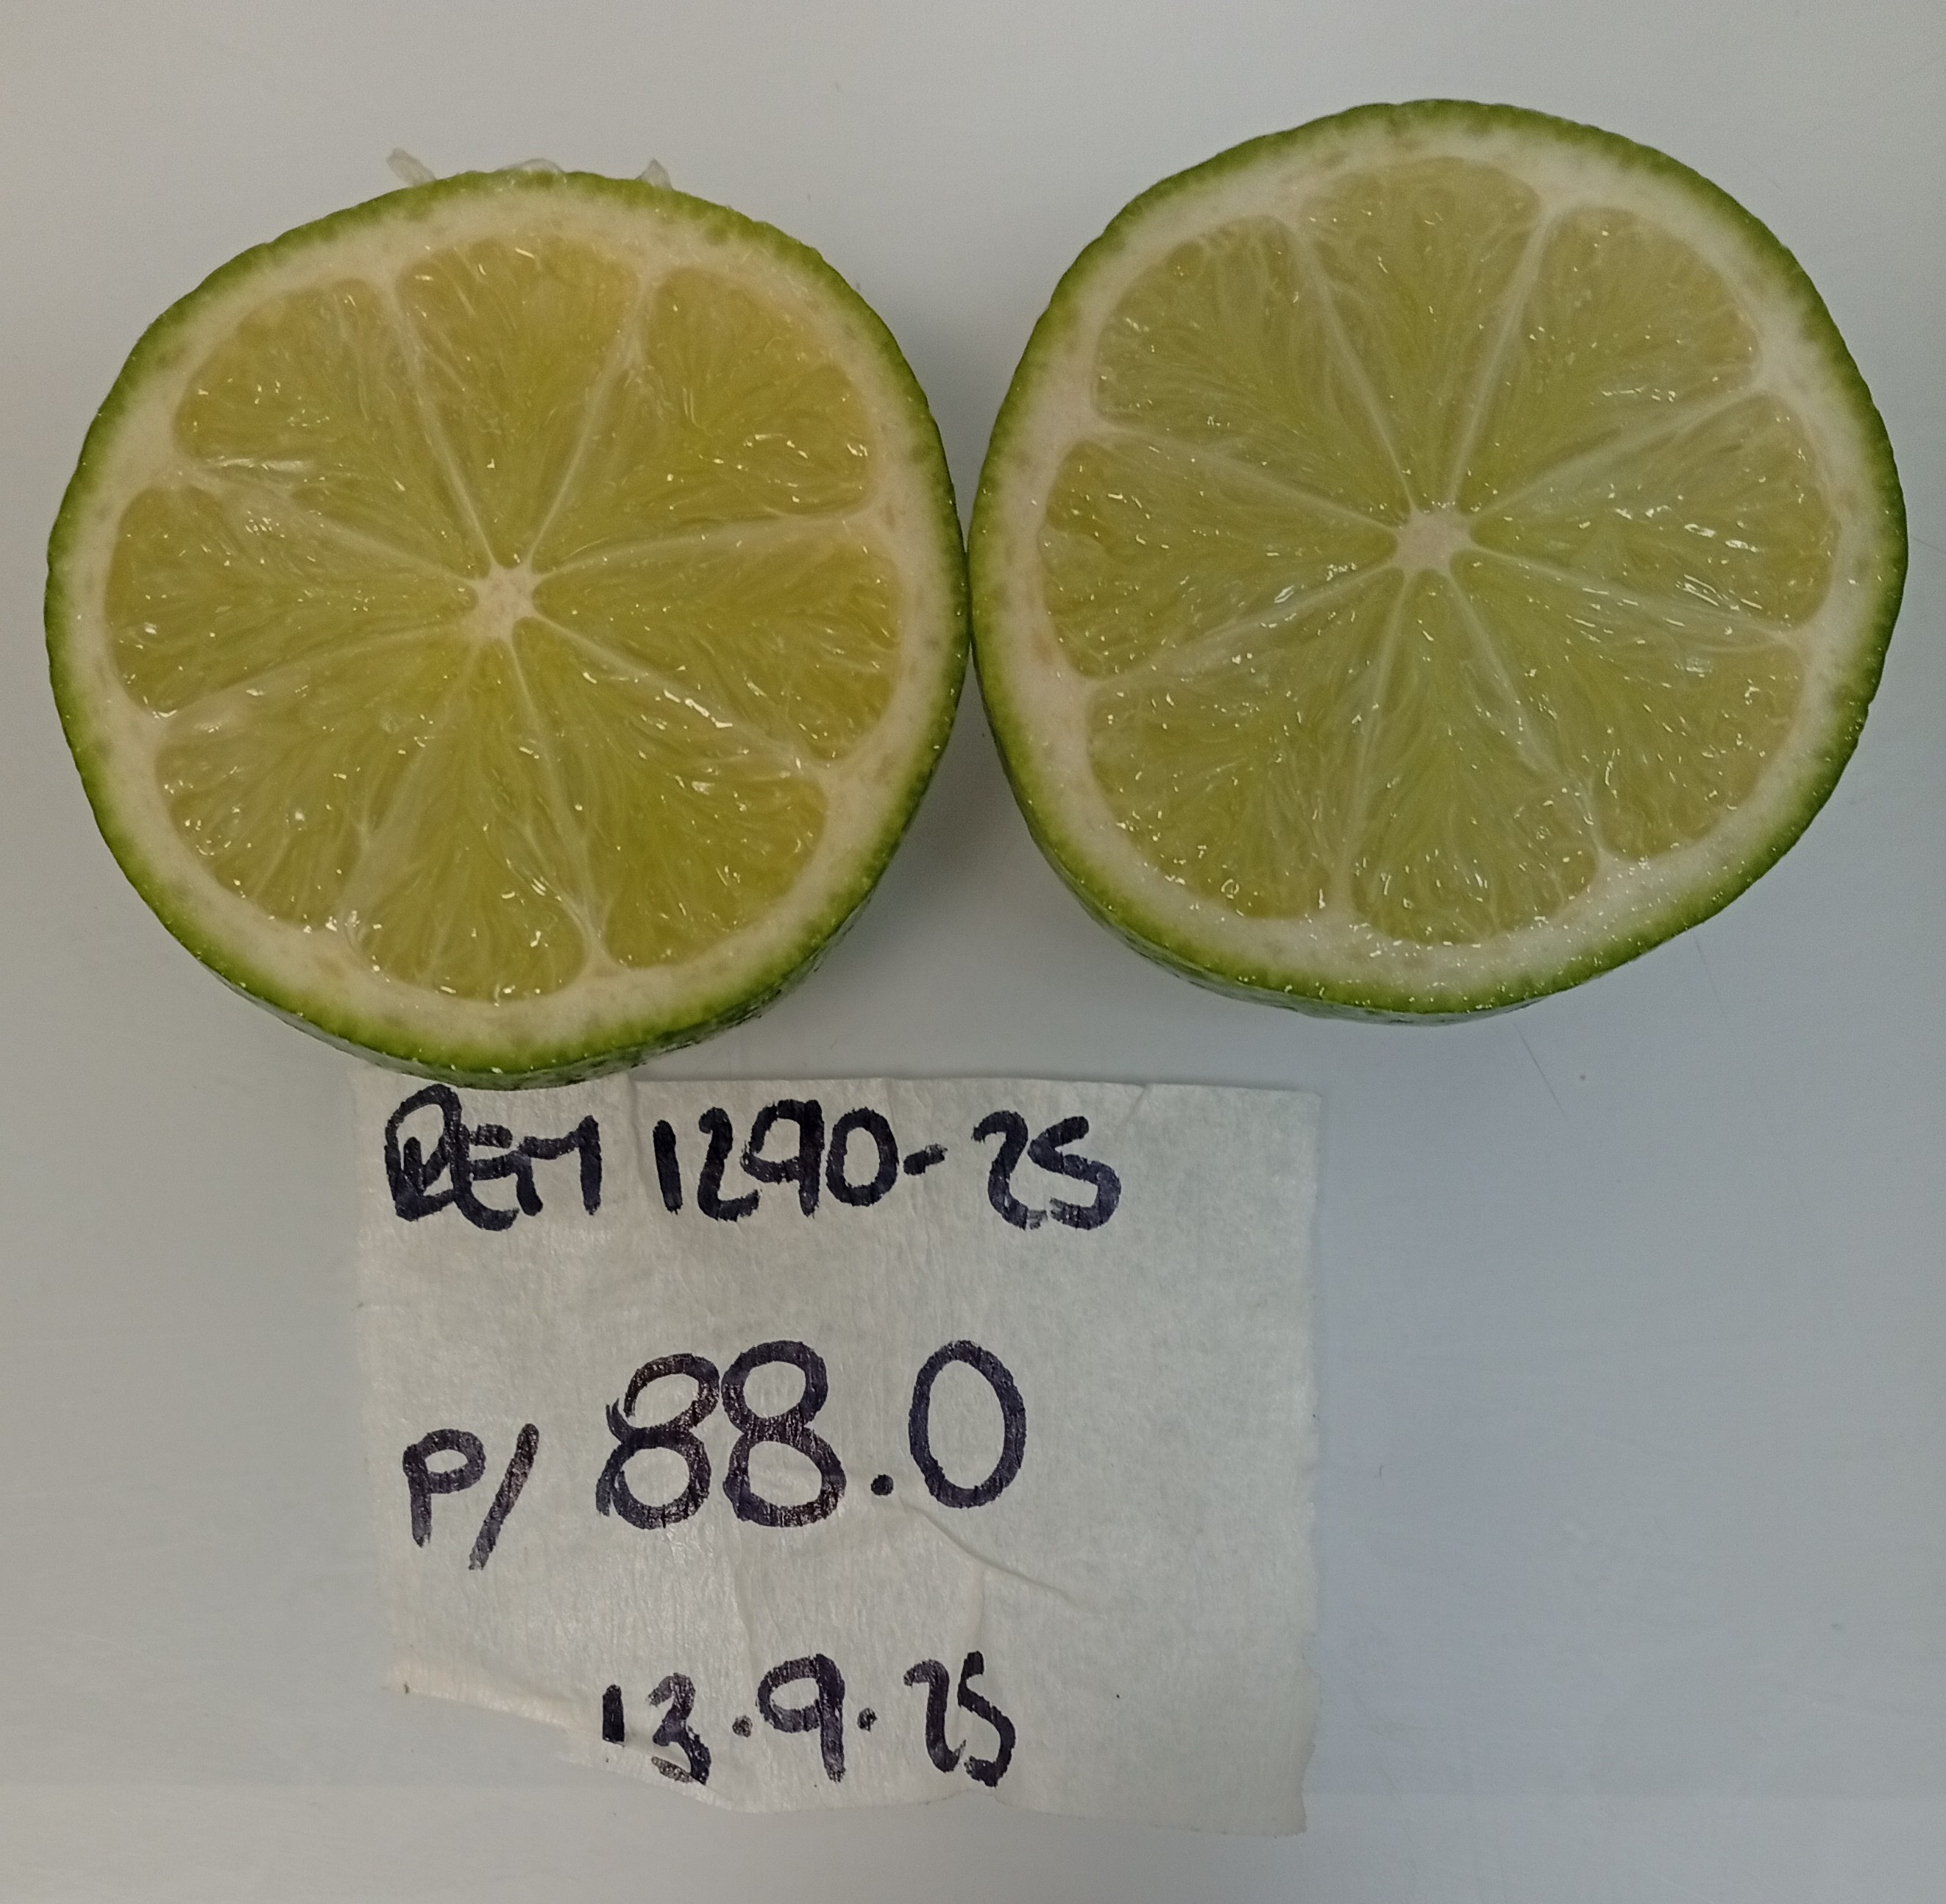 REM 1290-25
P/ 88.0
13.9.25